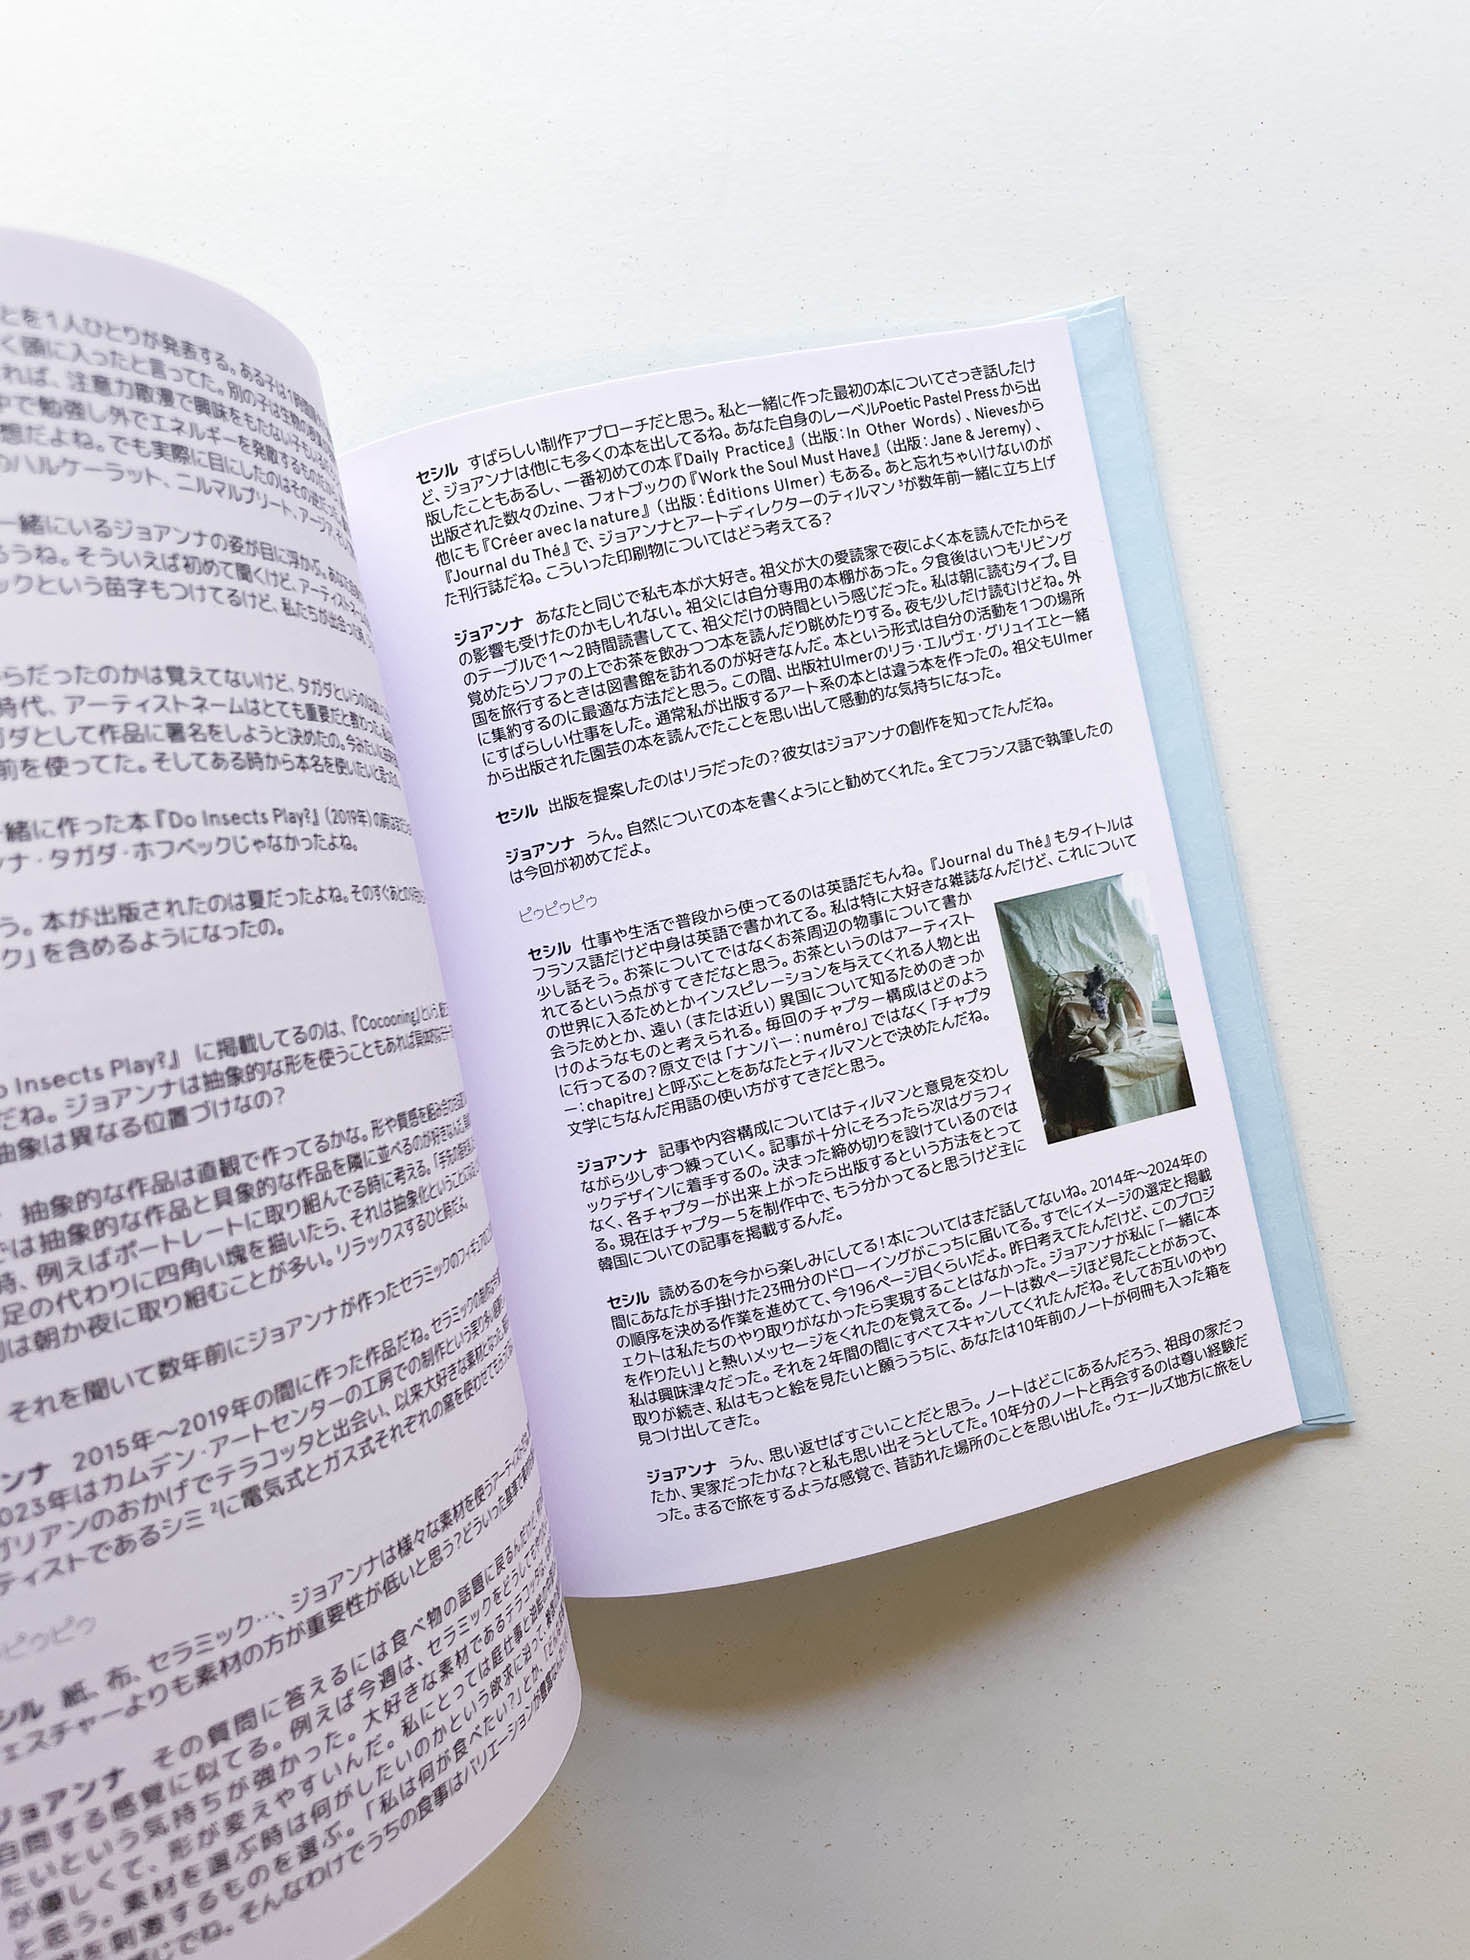 とを1人ひとりが発表する。ある子は1時間
く頭に入ったと言ってた。別の子は生物の
れば、注意力散漫で興味をもたない子もいる
中で勉強し外でエネルギーを発散するものだか
想だよね。でも実際に目にしたのはその逆だった
のハルケーラット、ニルマルプリート、アージア、そし
一緒にいるジョアンナの姿が目に浮かぶ。あなた
ろうね。そういえば初めて聞くけど、アーティストネーム
ックという苗字もつけてるけど、私たちが出会った
らだったのかは覚えてないけど、タガダというのは
時代、アーティストネームはとても重要だと教わった。
ガダとして作品に署名をしようと決めたの。今みたいに
前を使ってた。そしてある時から本名を使いたいと思った
一緒に作った本『Do Insects Play?』(2019年)の時は
ンナ・タガダ・ホフベックじゃなかったよね。
う。本が出版されたのは夏だったよね。そのすぐあとの
ク」を含めるようになったの。
o Insects Play?』に掲載してるのは、『Cocooning』という
だね。ジョアンナは抽象的な形を使うこともあれば具体的な
抽象は異なる位置づけなの?
抽象的な作品は直観で作ってるかな。形や質感を組み合わせ
では抽象的な作品と具象的な作品を隣に並べるのが好きなんだ。
時、例えばポートレートに取り組んでる時に考える。「手元の
足の代わりに四角い塊を描いたら、それは抽象化ということ
は朝か夜に取り組むことが多い。リラックスするひと時だよ。
それを聞いて数年前にジョアンナが作ったセラミックのフィギュア
ンナ 2015年〜2019年の間に作った作品だね。セラミックの
2023年はカムデン・アートセンターの工房での制作という実り多い
ガリアンのおかげでテラコッタと出会い、以来大好きな素材となった。
ティストであるシミ²に電気式とガス式それぞれの窯を使わせてもらった
ピゥピゥ
シル 紙、布、セラミック…、ジョアンナは様々な素材を使うアーティスト
ェスチャーよりも素材の方が重要性が低いと思う?どういった基準で
ジョアンナ その質問に答えるには食べ物の話題に戻るんだけど、
自問する感覚に似てる。例えば今週は、セラミックをどうしてもやり
たいという気持ちが強かった。大好きな素材であるテラコッタは
が優しくて、形が変えやすいんだ。私にとっては庭仕事と油絵の
と思う。素材を選ぶ時は何がしたいのかという欲求に沿って、
を刺激するものを選ぶ。「私は何が食べたい?」とか、
感じでね。そんなわけでうちの食事はバリエーションが豊富なん
セシル すばらしい制作アプローチだと思う。私と一緒に作った最初の本についてさっき話したけ
ど、ジョアンナは他にも多くの本を出してるね。あなた自身のレーベルPoetic Pastel Pressから出
版したこともあるし、一番初めての本『Daily Practice』(出版：In Other Words)、Nievesから
出版された数々のzine、フォトブックの『Work the Soul Must Have』(出版：Jane & Jeremy)、
他にも『Créer avec la nature』(出版：Éditions Ulmer)もある。あと忘れちゃいけないのが
『Journal du Thé』で、ジョアンナとアートディレクターのティルマン³が数年前一緒に立ち上げ
た刊行誌だね。こういった印刷物についてはどう考えてる?
ジョアンナ あなたと同じで私も本が大好き。祖父が大の愛読家で夜によく本を読んでたからそ
の影響も受けたのかもしれない。祖父には自分専用の本棚があった。夕食後はいつもリビング
のテーブルで1〜2時間読書してて、祖父だけの時間という感じだった。私は朝に読むタイプ。目
覚めたらソファの上でお茶を飲みつつ本を読んだり眺めたりする。夜も少しだけ読むけどね。外
国を旅行するときは図書館を訪れるのが好きなんだ。本という形式は自分の活動を1つの場所
に集約するのに最適な方法だと思う。この間、出版社Ulmerのリラ・エルヴェ・グリュイエと一緒
にすばらしい仕事をした。通常私が出版するアート系の本とは違う本を作ったの。祖父もUlmer
から出版された園芸の本を読んでたことを思い出して感動的な気持ちになった。
セシル 出版を提案したのはリラだったの?彼女はジョアンナの創作を知ってたんだね。
ジョアンナ うん。自然についての本を書くようにと勧めてくれた。全てフランス語で執筆したの
は今回が初めてだよ。
ピゥピゥピゥ
セシル 仕事や生活で普段から使ってるのは英語だもんね。『Journal du Thé』もタイトルは
フランス語だけど中身は英語で書かれてる。私は特に大好きな雑誌なんだけど、これについて
少し話そう。お茶についてではなくお茶周辺の物事について書か
れてるという点がすてきだなと思う。お茶というのはアーティスト
の世界に入るためとかインスピレーションを与えてくれる人物と出
会うためとか、遠い(または近い)異国について知るためのきっか
けのようなものと考えられる。毎回のチャプター構成はどのよう
に行ってるの?原文では「ナンバー：numéro」ではなく「チャプタ
ー：chapitre」と呼ぶことをあなたとティルマンとで決めたんだね。
文学にちなんだ用語の使い方がすてきだと思う。
ジョアンナ 記事や内容構成についてはティルマンと意見を交わし
ながら少しずつ練っていく。記事が十分にそろったら次はグラフィ
ックデザインに着手するの。決まった締め切りを設けているのでは
なく、各チャプターが出来上がったら出版するという方法をとって
る。現在はチャプター5を制作中で、もう分かってると思うけど主に
韓国についての記事を掲載するんだ。
セシル 読めるのを今から楽しみにしてる!本についてはまだ話してないね。2014年〜2024年の
間にあなたが手掛けた23冊分のドローイングがこっちに届いてる。すでにイメージの選定と掲載
の順序を決める作業を進めてて、今196ページ目くらいだよ。昨日考えてたんだけど、このプロジ
ェクトは私たちのやり取りがなかったら実現することはなかった。ジョアンナが私に「一緒に本
を作りたい」と熱いメッセージをくれたのを覚えてる。ノートは数ページほど見たことがあって、
私は興味津々だった。それを2年間の間にすべてスキャンしてくれたんだね。そしてお互いのやり
取りが続き、私はもっと絵を見たいと願ううちに、あなたは10年前のノートが何冊も入った箱を
見つけ出してきた。
ジョアンナ うん、思い返せばすごいことだと思う。ノートはどこにあるんだろう、祖母の家だっ
たか、実家だったかな?と私も思い出そうとしてた。10年分のノートと再会するのは尊い経験だ
った。まるで旅をするような感覚で、昔訪れた場所のことを思い出した。ウェールズ地方に旅をし